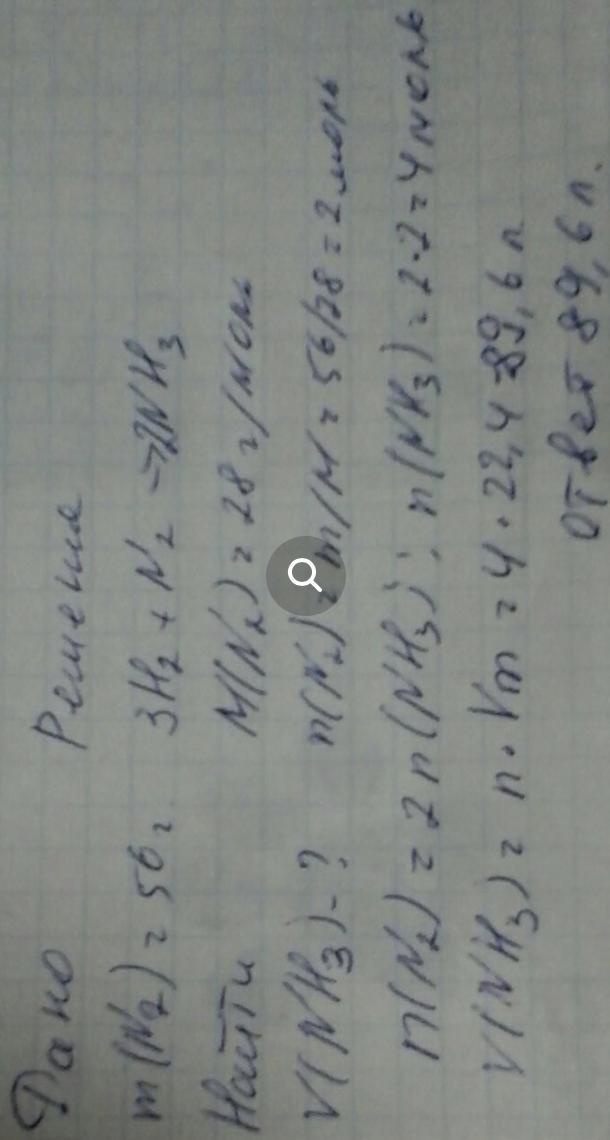 Дано
Решение
m(N₂) = 56 г.
3H₂ + N₂ → 2NH₃
Найти
M(N₂) = 28 г/моль
V(NH₃) - ?
n(N₂) = m/M = 56/28 = 2 моль
n(N₂) = 2n(NH₃); n(NH₃) = 2·2 = 4 моль
V(NH₃) = n·Vm = 4·22,4 = 89,6 л
Ответ 89,6 л.